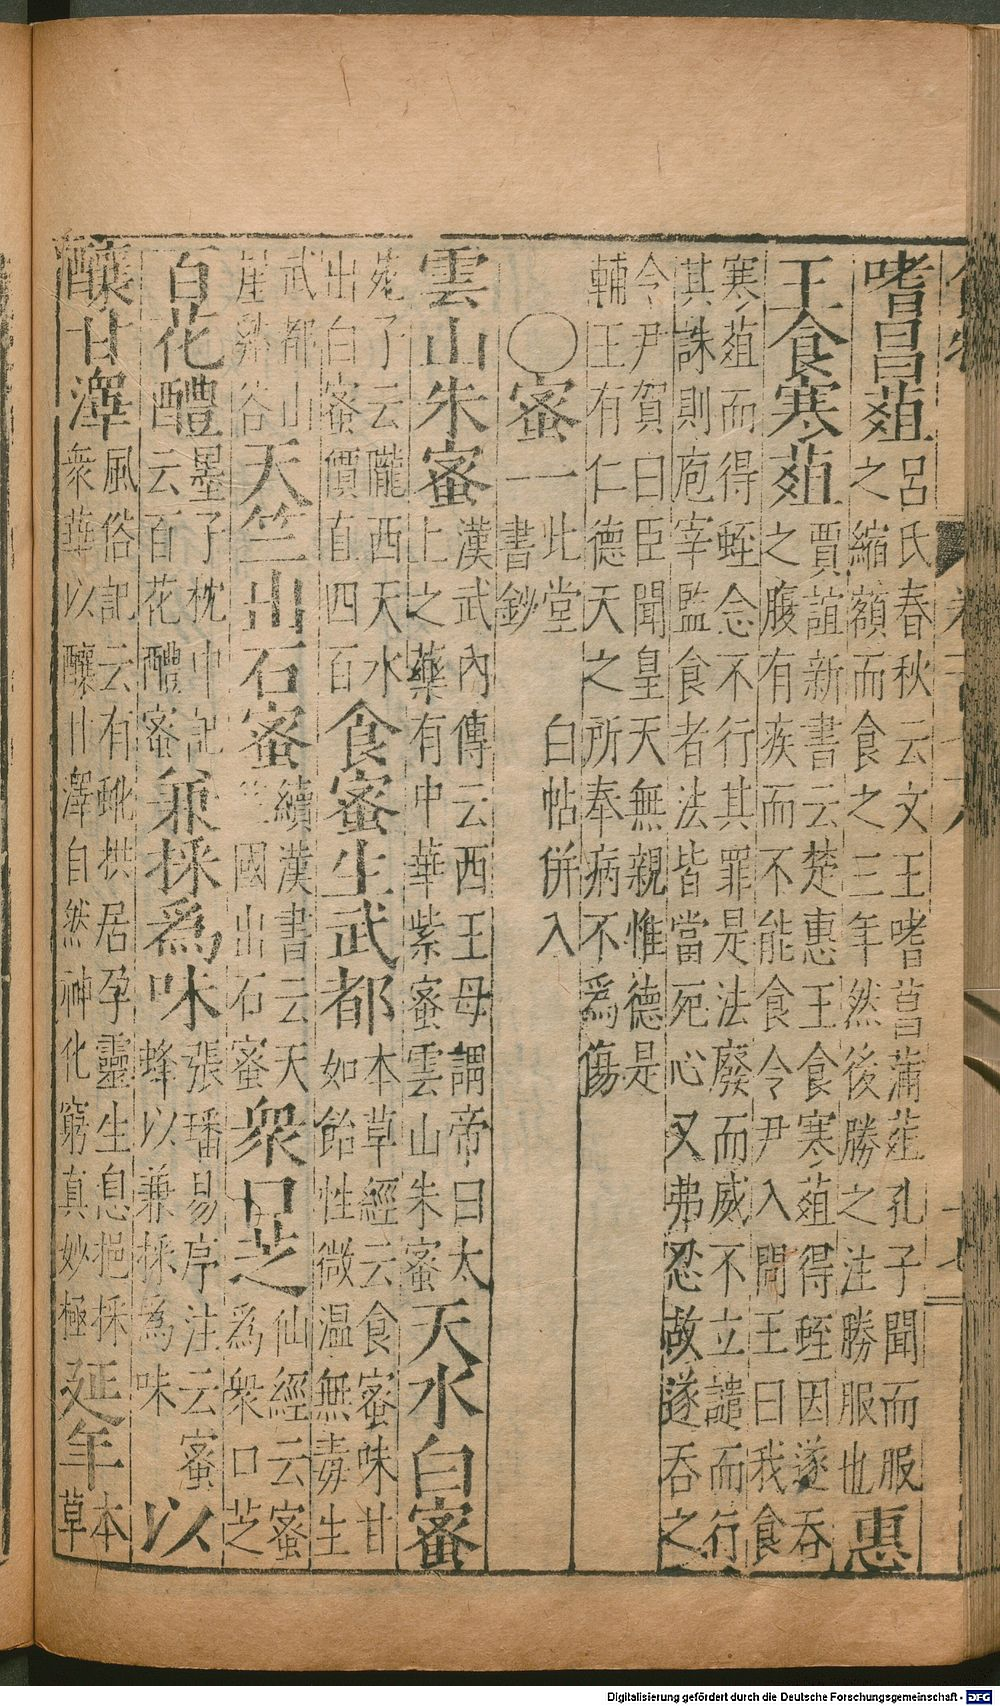 嗜昌葅呂氏春秋云文王嗜菖蒲葅孔子聞而服
之縮額而食之三年然後勝之注勝服也惠
王食寒葅賈誼新書云楚惠王食寒葅得蛭因遂吞
之腹有疾而不能食令尹入問王曰我食
寒葅而得蛭念不行其罪是法廢而威不立譴而行
其誅則庖宰監食者法皆當死心又弗忍故遂吞之
令尹賀曰臣聞皇天無親惟德是
輔王有仁德天之所奉病不為傷
○蜜一此堂書鈔 白帖併入
雲山朱蜜漢武內傳云西王母謂帝曰太
上之藥有中華紫蜜雲山朱蜜天水白蜜
苑子云隴西天水
出白蜜價直四百食蜜生武都本草經云食蜜味甘
如飴性微温無毒生
武都山
崖谷天竺出石蜜續漢書云天
竺國出石蜜衆口芝仙經云蜜
為衆口芝
百花醴墨子枕中記
云百花醴蜜兼採爲味張璠易序注云蜜
蜂以兼採爲味以
釀甘澤風俗記云有拱居孕靈生息挹採
衆華以釀甘澤自然神化窮真妙極延年本
草
Digitalisierung gefördert durch die Deutsche Forschungsgemeinschaft - DFG